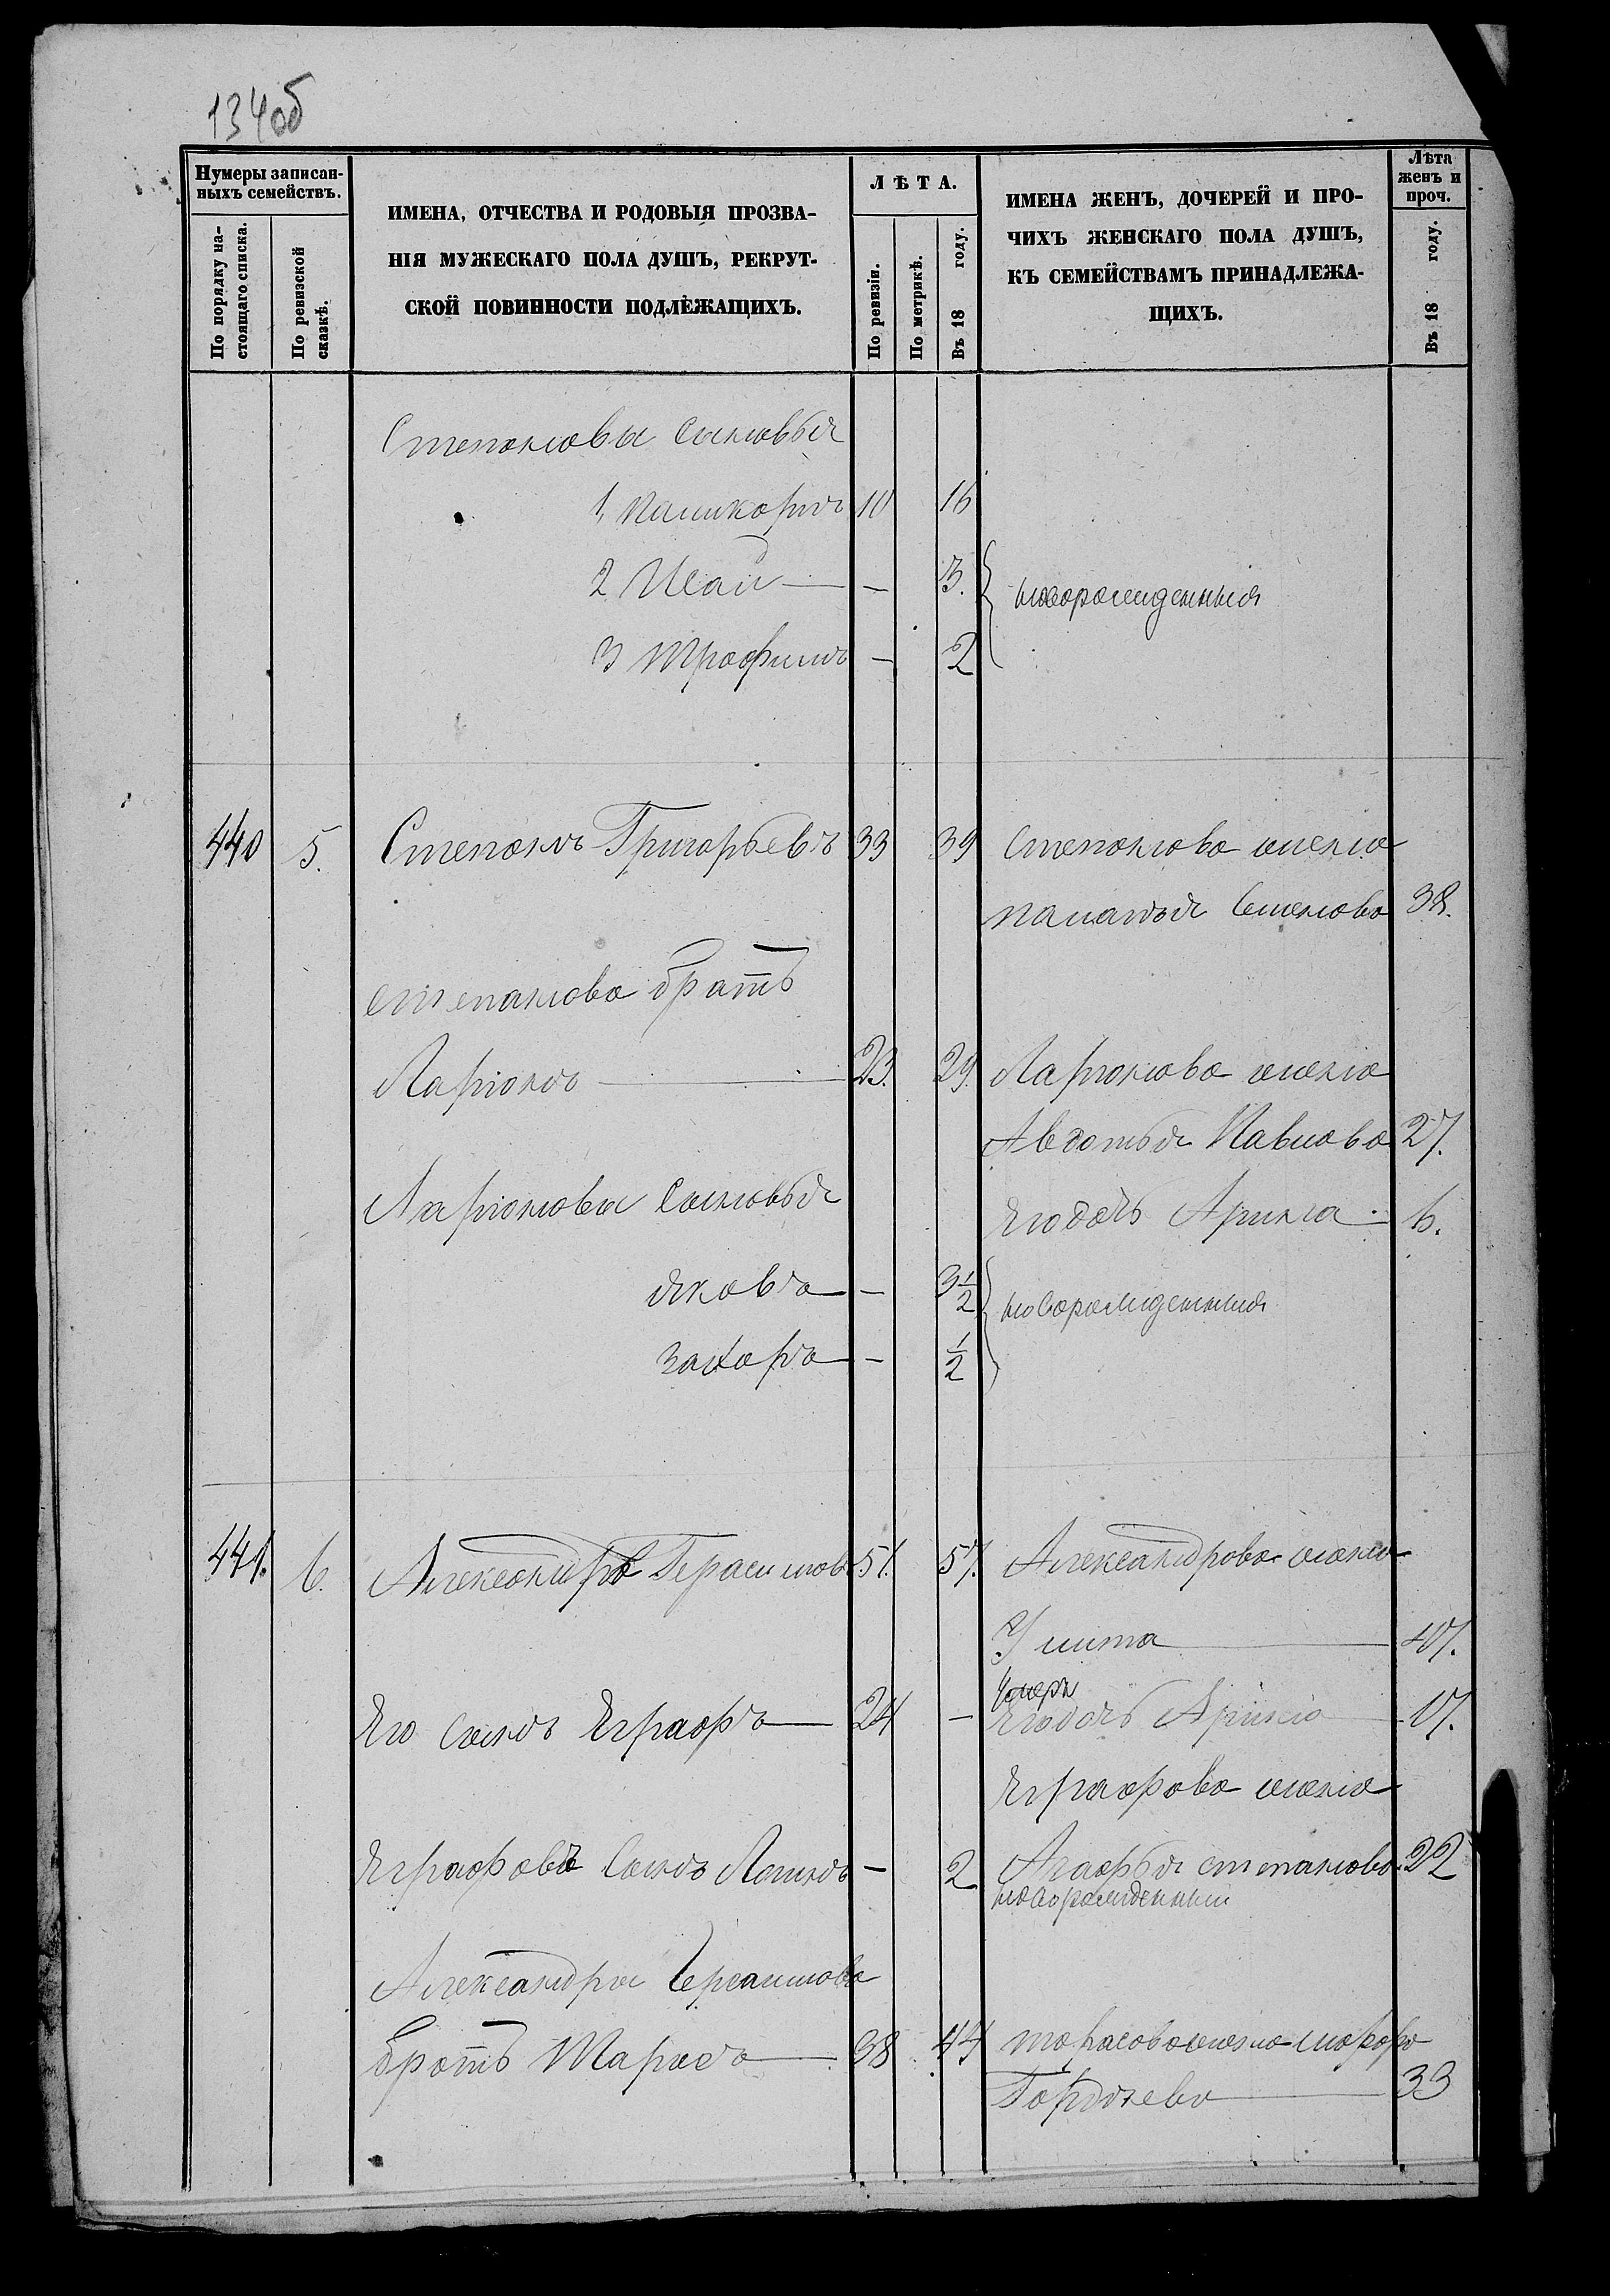 134об
Нумеры записан-
ныхъ семействъ.
По порядку на-
стоящаго списка.
По ревизской
сказкѣ.
ИМЕНА, ОТЧЕСТВА И РОДОВЫЯ ПРОЗВА-
НІЯ МУЖЕСКАГО ПОЛА ДУШЪ, РЕКРУТ-
СКОЙ ПОВИННОСТИ ПОДЛЕЖАЩИХЪ.
ЛѢТА.
По ревизіи.
По метрикѣ.
Въ 18 году.
ИМЕНА ЖЕНЪ, ДОЧЕРЕЙ И ПРО-
ЧИХЪ ЖЕНСКАГО ПОЛА ДУШЪ,
КЪ СЕМЕЙСТВАМЪ ПРИНАДЛЕЖА-
ЩИХЪ.
Лѣта
женъ и
проч.
Въ 18 году.
Степановы сыновья
1, 10 16
2 Исай — — 3.
новорожденныя
3 Трофимъ — 2
440 5. Степанъ Григорьевъ 33 39 Степанова жена
палагѣя Семенова 38.
степанова братъ
Ларіонъ — 23. 29. Ларіонова жена
Авдотья Павлова 27.
Ларіоновы Сыновья
Ягодочь Арина — 6.
яковъ — — 3 1/2
новорожденныя
захаръ — — 1/2
441. 6. Александръ Герасимовъ 51. 57. Александрова жена
Улита — 47.
умеръ
Его сынъ Еграфъ — 24 — Ягодочь Арина — 17.
Еграфова жена
Еграфовъ Сынъ Логинъ — 2 Агафья степанова 22
новорожденный
Александры Герасимова
братъ Тарасъ — 38 44 тарасова жена
Гордѣева — 33